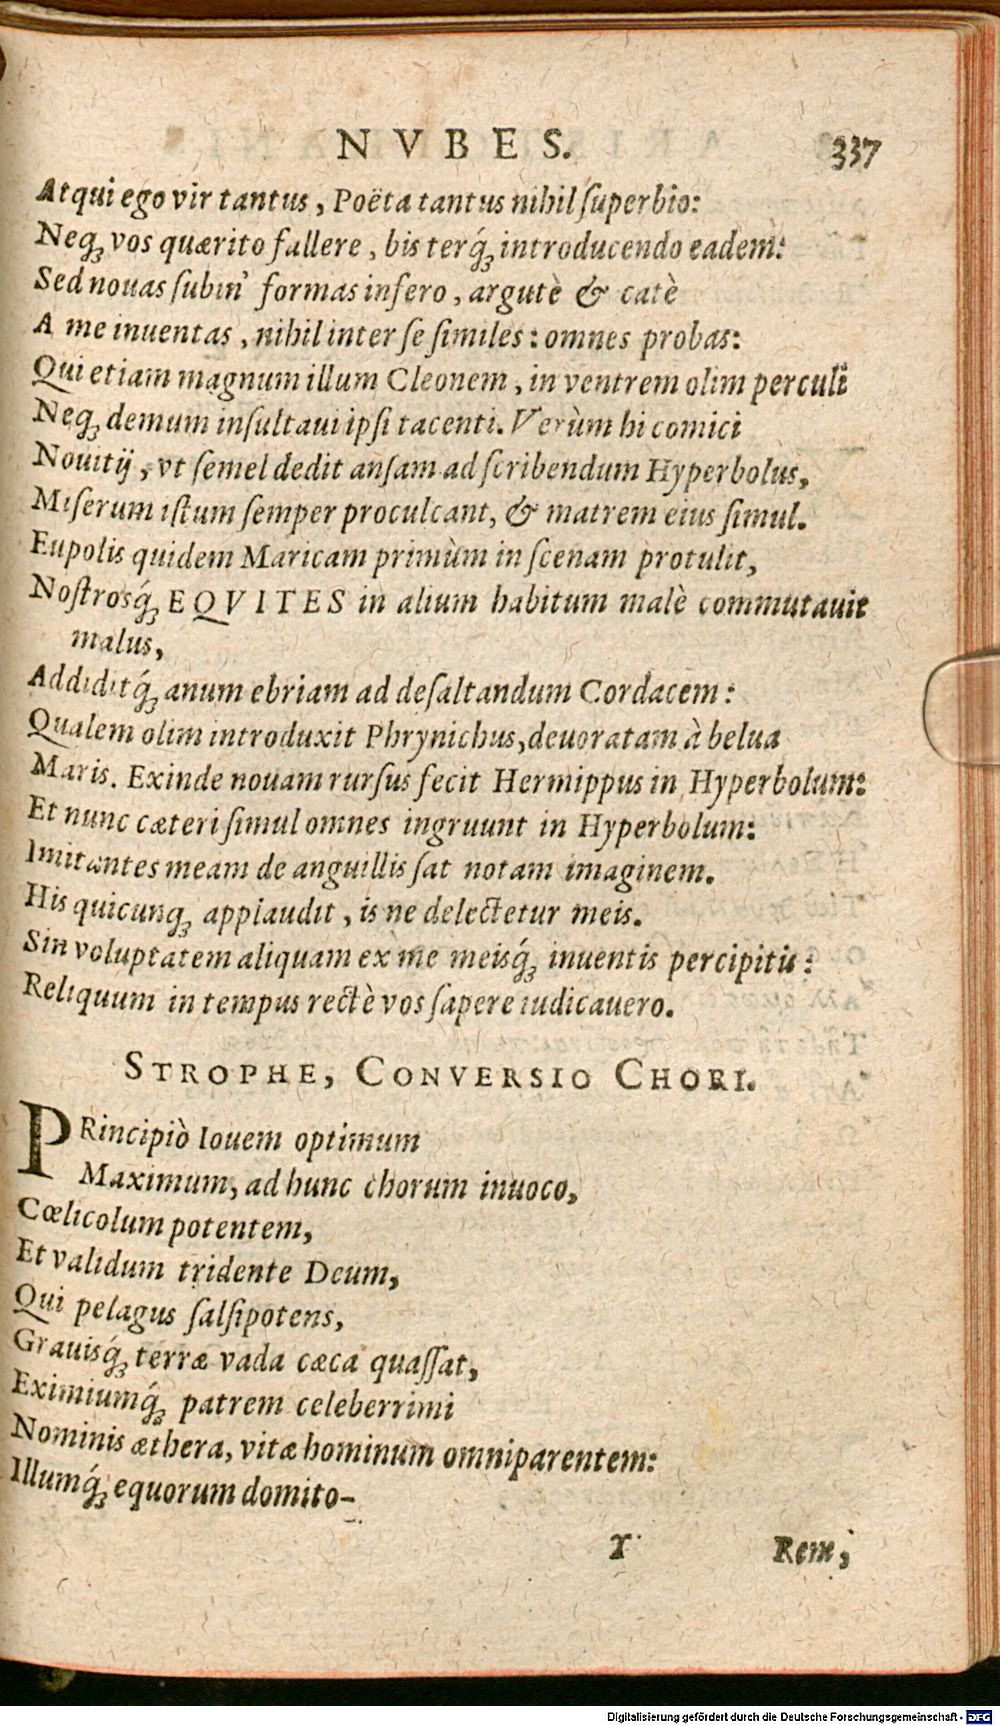 NVBES. 337
Atqui ego vir tantus, Poëta tantus nihil ſuperbio:
Neq́ꝫ vos quærito fallere, bis terq́ꝫ introducendo eadem:
Sed nouas ſubin' formas inſero, argutè & catè
A me inuentas, nihil inter ſe ſimiles: omnes probas:
Qui etiam magnum illum Cleonem, in ventrem olim perculi
Neqꝫ demum inſultaui ipſi tacenti. Verùm hi comici
Nouitij, vt ſemel dedit anſam ad ſcribendum Hyperbolus,
Miſerum iſtum ſemper proculcant, & matrem eius ſimul.
Eupolis quidem Maricam primùm in ſcenam protulit,
Noſtrosq́ꝫ EQVITES in alium habitum malè commutauit
malus,
Addiditq́ꝫ anum ebriam ad deſaltandum Cordacem:
Qualem olim introduxit Phrynichus, deuoratam à belua
Maris. Exinde nouam rurſus fecit Hermippus in Hyperbolum:
Et nunc cæteri ſimul omnes ingruunt in Hyperbolum:
Imitantes meam de anguillis ſat notam imaginem.
His quicunqꝫ applaudit, is ne delectetur meis.
Sin voluptatem aliquam ex me meisq́ꝫ inuentis percipitis:
Reliquum in tempus rectè vos ſapere iudicauero.
STROPHE, CONVERSIO CHORI.
PRincipiò Iouem optimum
Maximum, ad hunc chorum inuoco,
Cœlicolum potentem,
Et validum tridente Deum,
Qui pelagus ſalſipotens,
Grauisq́ꝫ terræ vada cæca quaſſat,
Eximiumq́ꝫ patrem celeberrimi
Nominis æthera, vitæ hominum omniparentem:
Illumq́ꝫ equorum domito-
Y Rem,
Digitalisierung gefördert durch die Deutsche Forschungsgemeinschaft - DFG